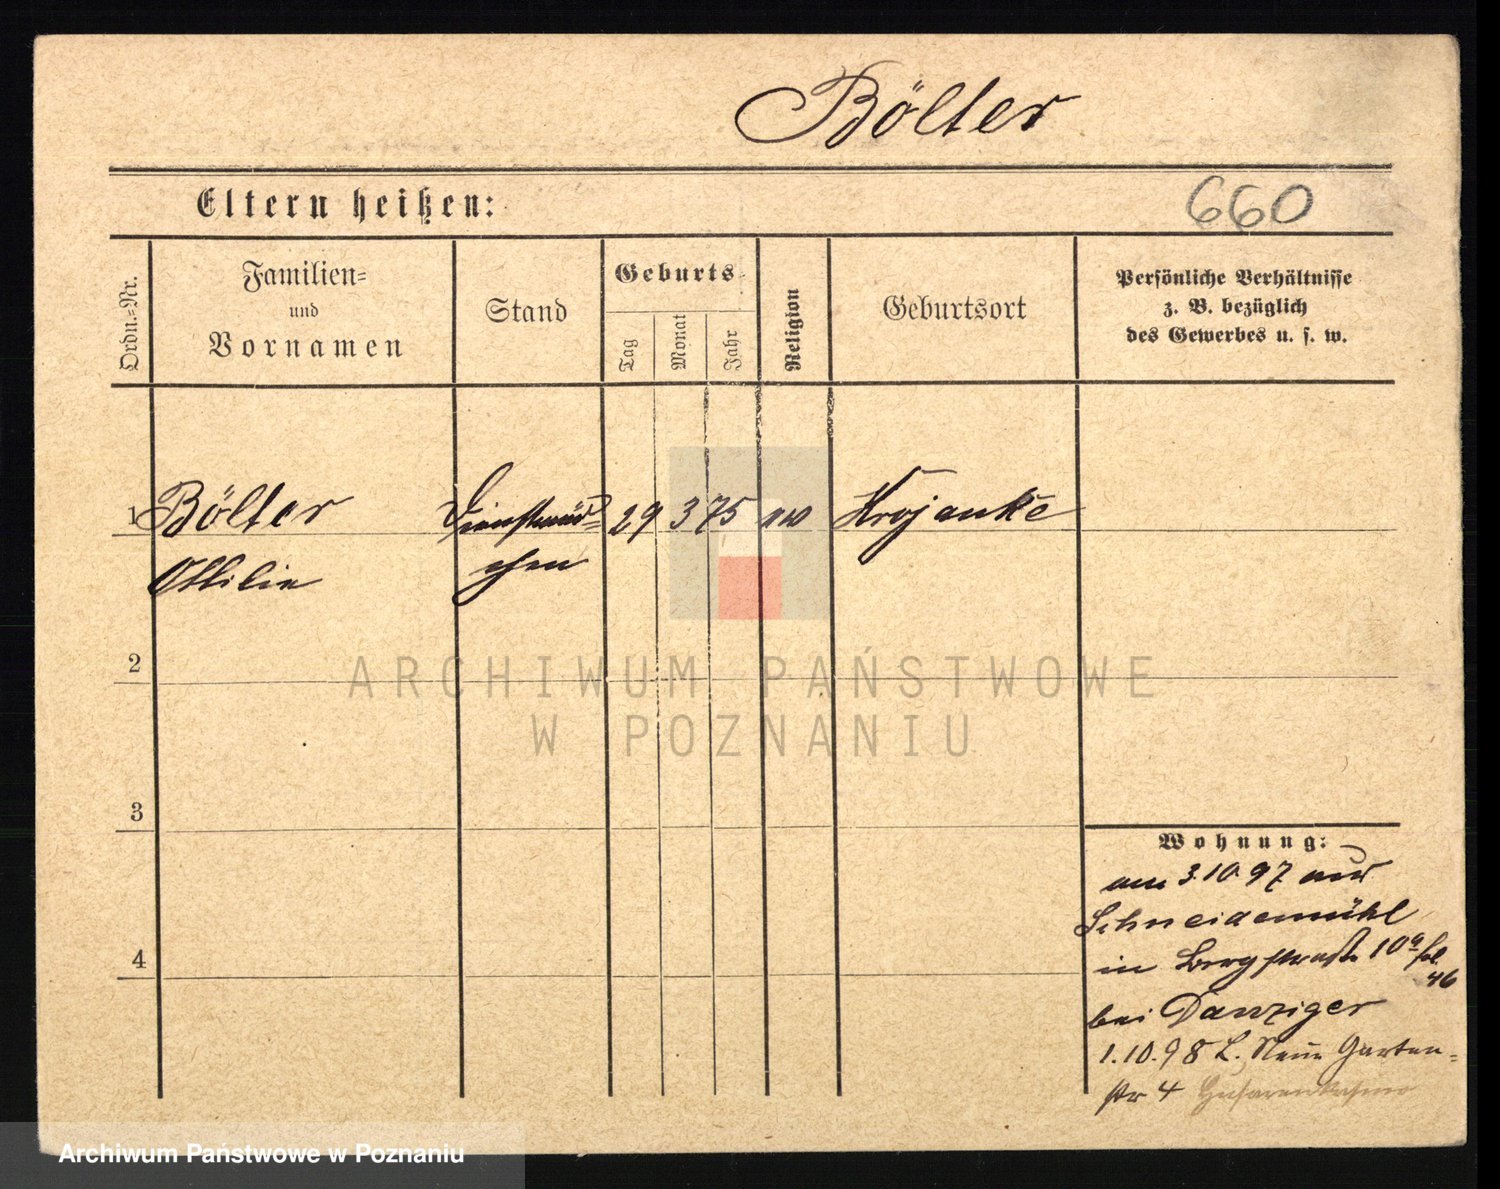 Bölter
Eltern heißen:
660
Ordn.-Nr.
Familien-
und
Vornamen
Stand
Geburts-
Tag
Monat
Jahr
Religion
Geburtsort
Persönliche Verhältnisse
z. B. bezüglich
des Gewerbes u. s. w.
1 Bölter Dienstmäd= 29 3 75 Krojanke
Ottilie chen
2
ARCHIWUM PAŃSTWOWE
W POZNANIU
3
4
Wohnung:
am 3.10.97 aus
Schneidemühl
in Bergstraße 10a
46
bei Danziger
1.10.98 L. Neue Garten=
str 4 Husarenkasino
Archiwum Państwowe w Poznaniu